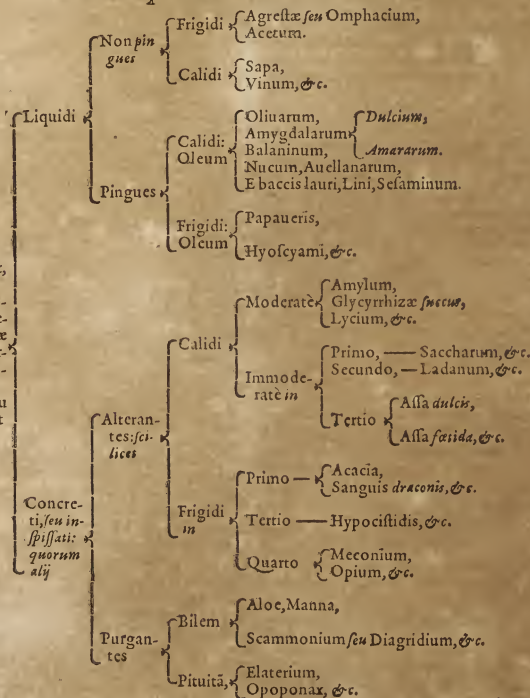 Liquidi
Non pin
gues
Frigidi
Agreſtæ ſeu Omphacium,
Acetum.
Calidi
Sapa,
Vinum, &c.
Pingues
Calidi:
Oleum
Oliuarum,
Amygdalarum
Dulcium,
Amararum.
Balaninum,
Nucum, Auellanarum,
E baccis lauri, Lini, Seſaminum.
Frigidi:
Oleum
Papaueris,
Hyoſcyami, &c.
Concre-
ti, ſeu in-
ſpiſſati:
quorum
alij
Alteran-
tes: ſci-
licet
Calidi
Moderatè
Amylum,
Glycyrrhizæ ſuccus,
Lycium, &c.
Immode-
ratè in
Primo, — Saccharum, &c.
Secundo, — Ladanum, &c.
Tertio
Aſſa dulcis,
Aſſa fœtida, &c.
Frigidi
in
Primo —
Acacia,
Sanguis draconis, &c.
Tertio — Hypociſtidis, &c.
Quarto
Meconium,
Opium, &c.
Purgan-
tes
Bilem
Aloe, Manna,
Scammonium ſeu Diagridium, &c.
Pituitā,
Elaterium,
Opoponax, &c.